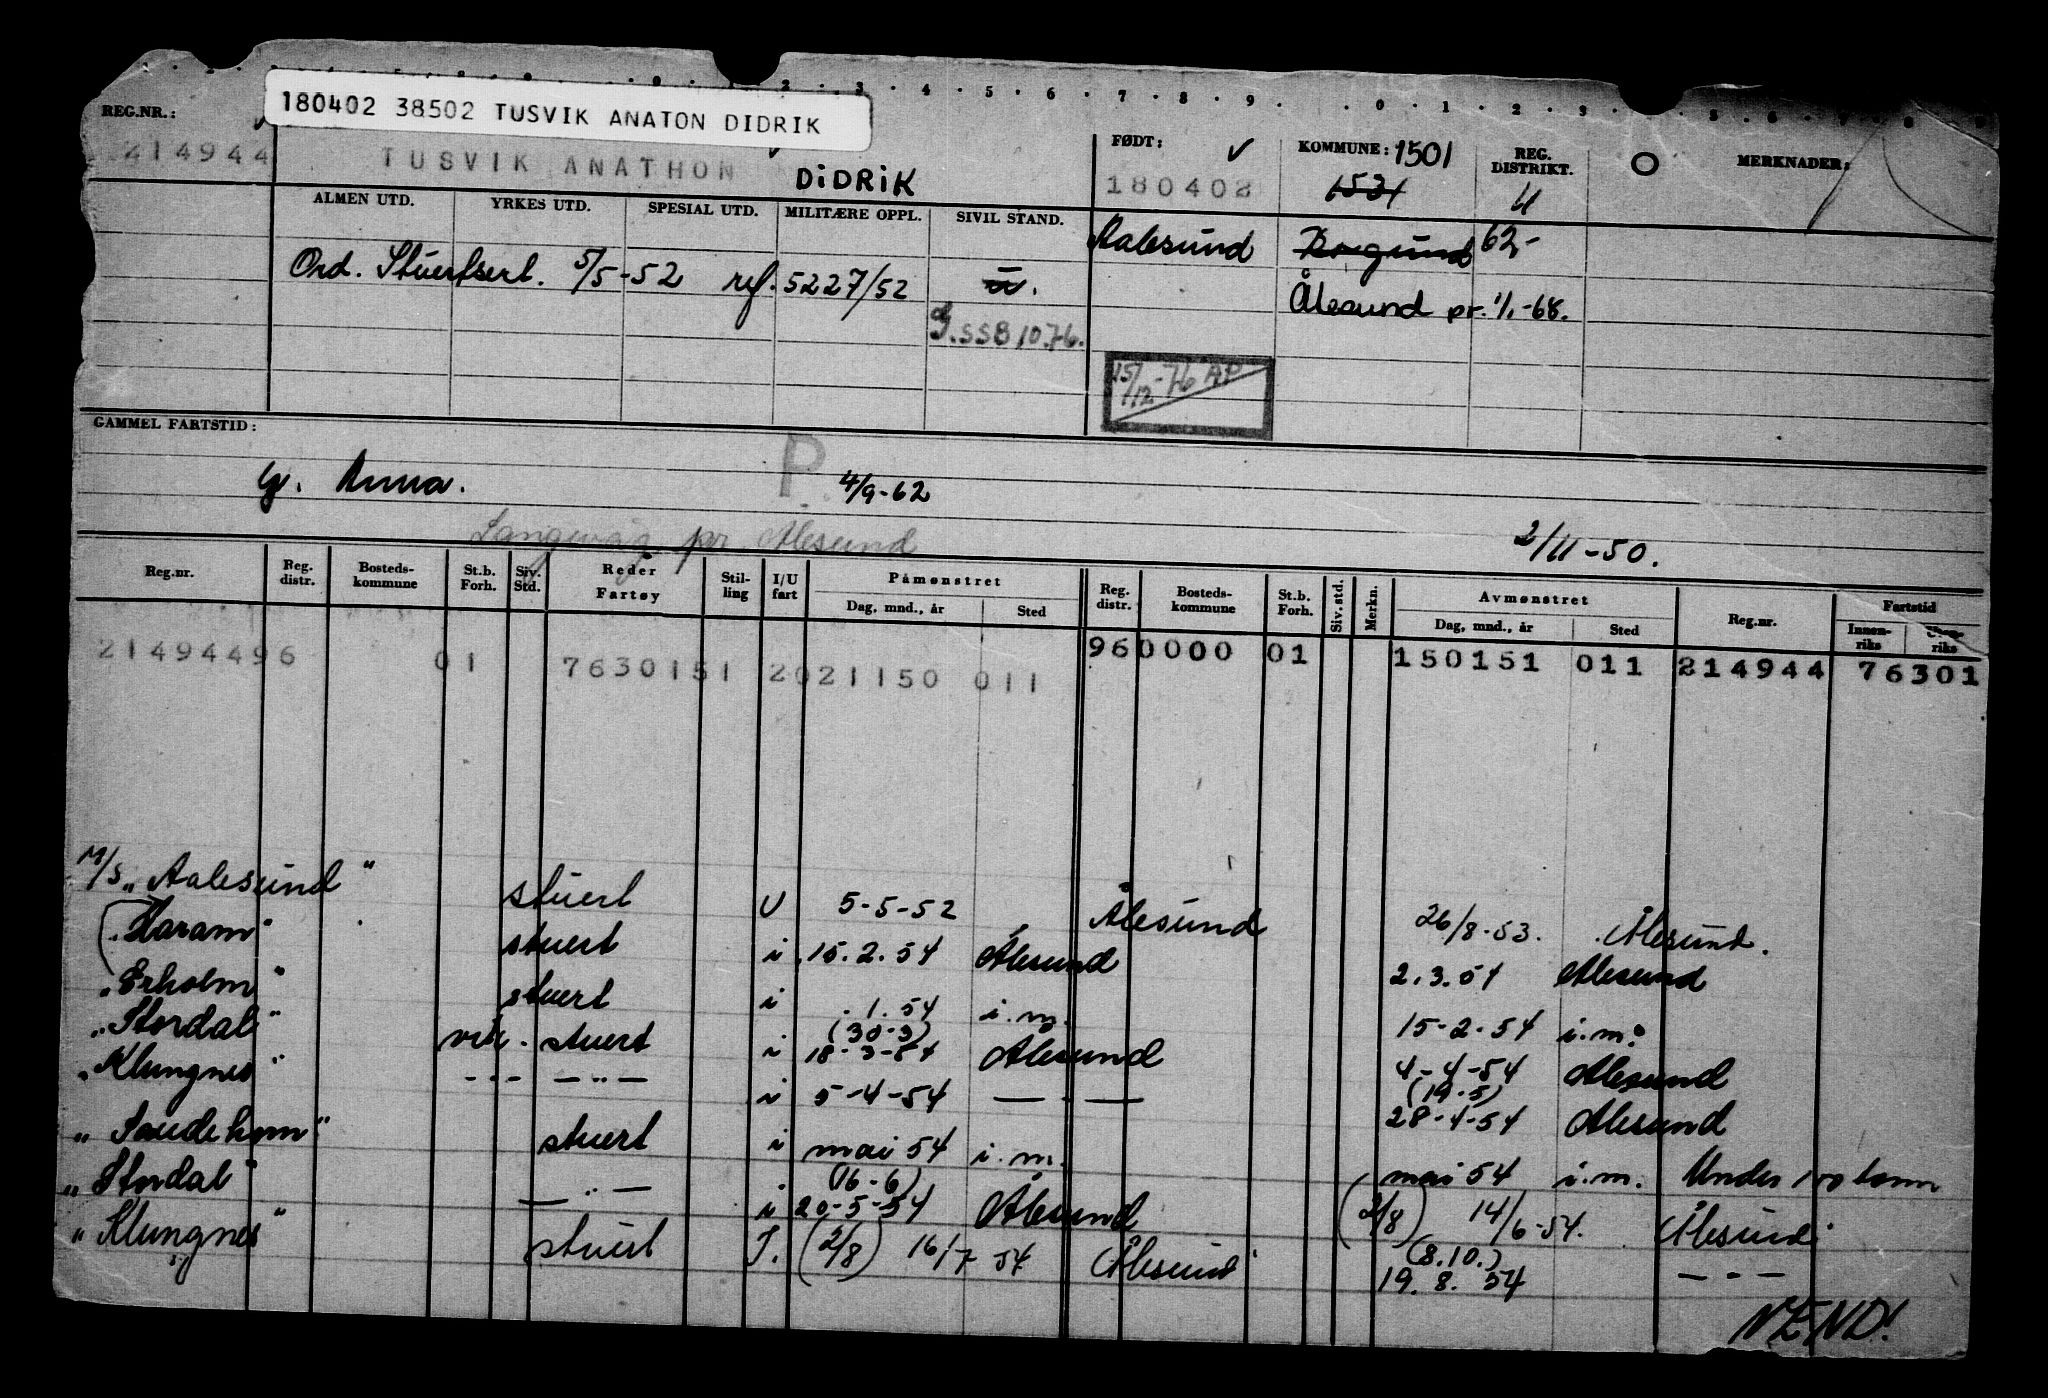 180402 38502 TUSVIK ANATON DIDRIK
REG.NR.: FØDT: KOMMUNE: 1501 REG. DISTRIKT. O MERKNADER:
214944 TUSVIK ANATHON DIDRIK 180402 1531 11
ALMEN UTD. YRKES UTD. SPESIAL UTD. MILITÆRE OPPL. SIVIL STAND.
Aalesund Borgund 62-
Ord. Stuertsert. 5/5-52 ref. 5227/52 u. Ålesund pr. 1/1-68.
G. SSB 10.76.
15/12-76 AP
GAMMEL FARTSTID:
P
g. Anna. 4/9-62
Langevåg pr. Ålesund 2/11-50.
Reg.nr. Reg. distr. Bosteds- kommune St.b. Forh. Siv. Std. Reder Fartøy Stil- ling I/U fart Påmønstret Dag, mnd., år Sted Reg. distr. Bosteds- kommune St.b. Forh. Siv. std. Merkn. Avmønstret Dag, mnd., år Sted Reg.nr. Fartstid Innen- riks Uten- riks
21494496 01 7630151 2021150 011 960000 01 150151 011 214944 76301
M/S "Aalesund" stuert U 5-5-52 Ålesund 26/8-53. Ålesund.
"Haram" stuert i 15.2.54 Ålesund 2.3.54 Ålesund
"Erholm" stuert i .1.54 i.m. 15-2-54 i.m.
"Stordal" vik. stuert i (30-3) 18-3-54 Ålesund 4-4-54 Ålesund
"Klungnes" --- — " — i 5-4-54 — " — (19-5) 28-4-54 Ålesund
" stuert i mai 54 i.m. mai 54 i.m. Under 100 tonn
"Stordal" — " — i (16-6) 20-5-54 Ålesund (2/8) 14/6-54. Ålesund
"Klungnes" stuert I. (2/8) 16/7 54 Ålesund (8.10.) 19.8.54 — " —
VEND!